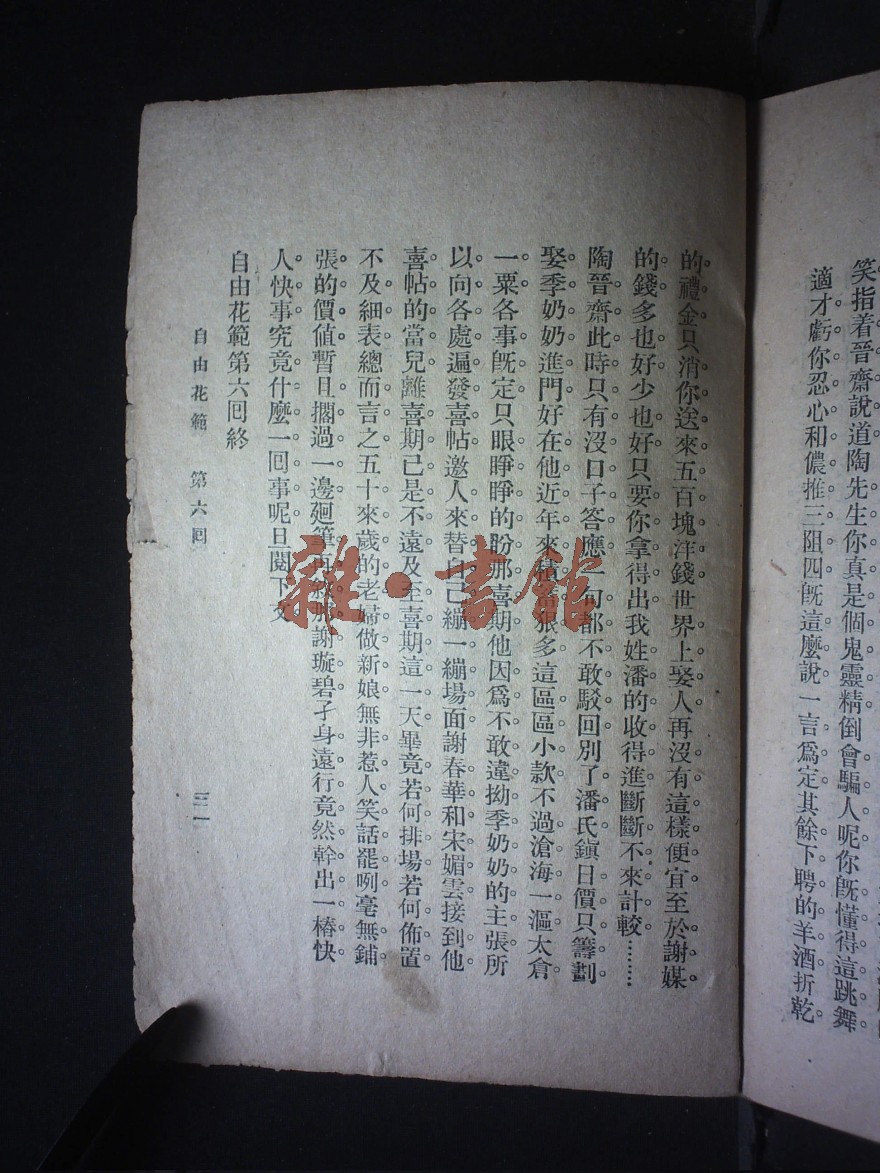 笑指着晉齋說道陶先生你眞是個鬼靈精倒會騙人呢你旣懂得這跳舞
適才虧你忍心和儂推三阻四旣這麽說一言爲定其餘下聘的羊酒折乾
的禮金只消你送來五百塊洋錢世界上娶人再沒有這樣便宜至於謝媒
的錢多也好少也好只要你拿得出我姓潘的收得進斷斷不來計較………
陶晉齋此時只有沒口子答應一句都不敢駁回別了潘氏鎭日價只籌劃
娶季奶奶進門好在他近年來積 很多這區區小款不過滄海一漚太倉
一粟各事旣定只眼睜睜的盼那喜期他因爲不敢違拗季奶奶的主張所
以向各處遍發喜帖邀人來替自己繃一繃場面謝春華和宋媚雲接到他
喜帖的當兒離喜期已是不遠及至喜期這一天畢竟若何排場若何佈置
不及細表總而言之五十來歲的老婦做新娘無非惹人笑話罷咧毫無鋪
張的價値暫且擱過一邊廻筆再 謝璇碧孑身遠行竟然幹出一樁快
人快事究竟什麼一回事呢且閱下文
自由花範第六回終
自由花範 第六回
三一
雜·書館